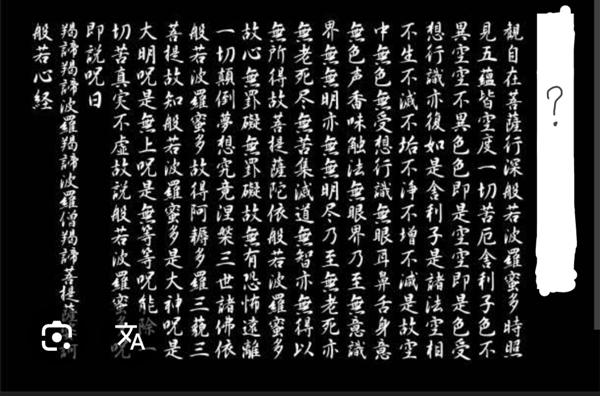 ?
観自在菩薩行深般若波羅蜜多時照
見五蘊皆空度一切苦厄舎利子色不
異空空不異色色即是空空即是色受
想行識亦復如是舎利子是諸法空相
不生不滅不垢不浄不増不減是故空
中無色無受想行識無眼耳鼻舌身意
無色声香味触法無眼界乃至無意識
界無無明亦無無明尽乃至無老死亦
無老死尽無苦集滅道無智亦無得以
無所得故菩提薩陀依般若波羅蜜多
故心無罣礙無罣礙故無有恐怖遠離
一切顛倒夢想究竟涅槃三世諸佛依
般若波羅蜜多故得阿耨多羅三藐三
菩提故知般若波羅蜜多是大神呪是
大明呪是無上呪是無等等呪能除一
切苦真実不虚故説般若波羅蜜呪
即説呪曰
羯諦羯諦波羅羯諦波羅僧羯諦菩提薩訶
般若心経